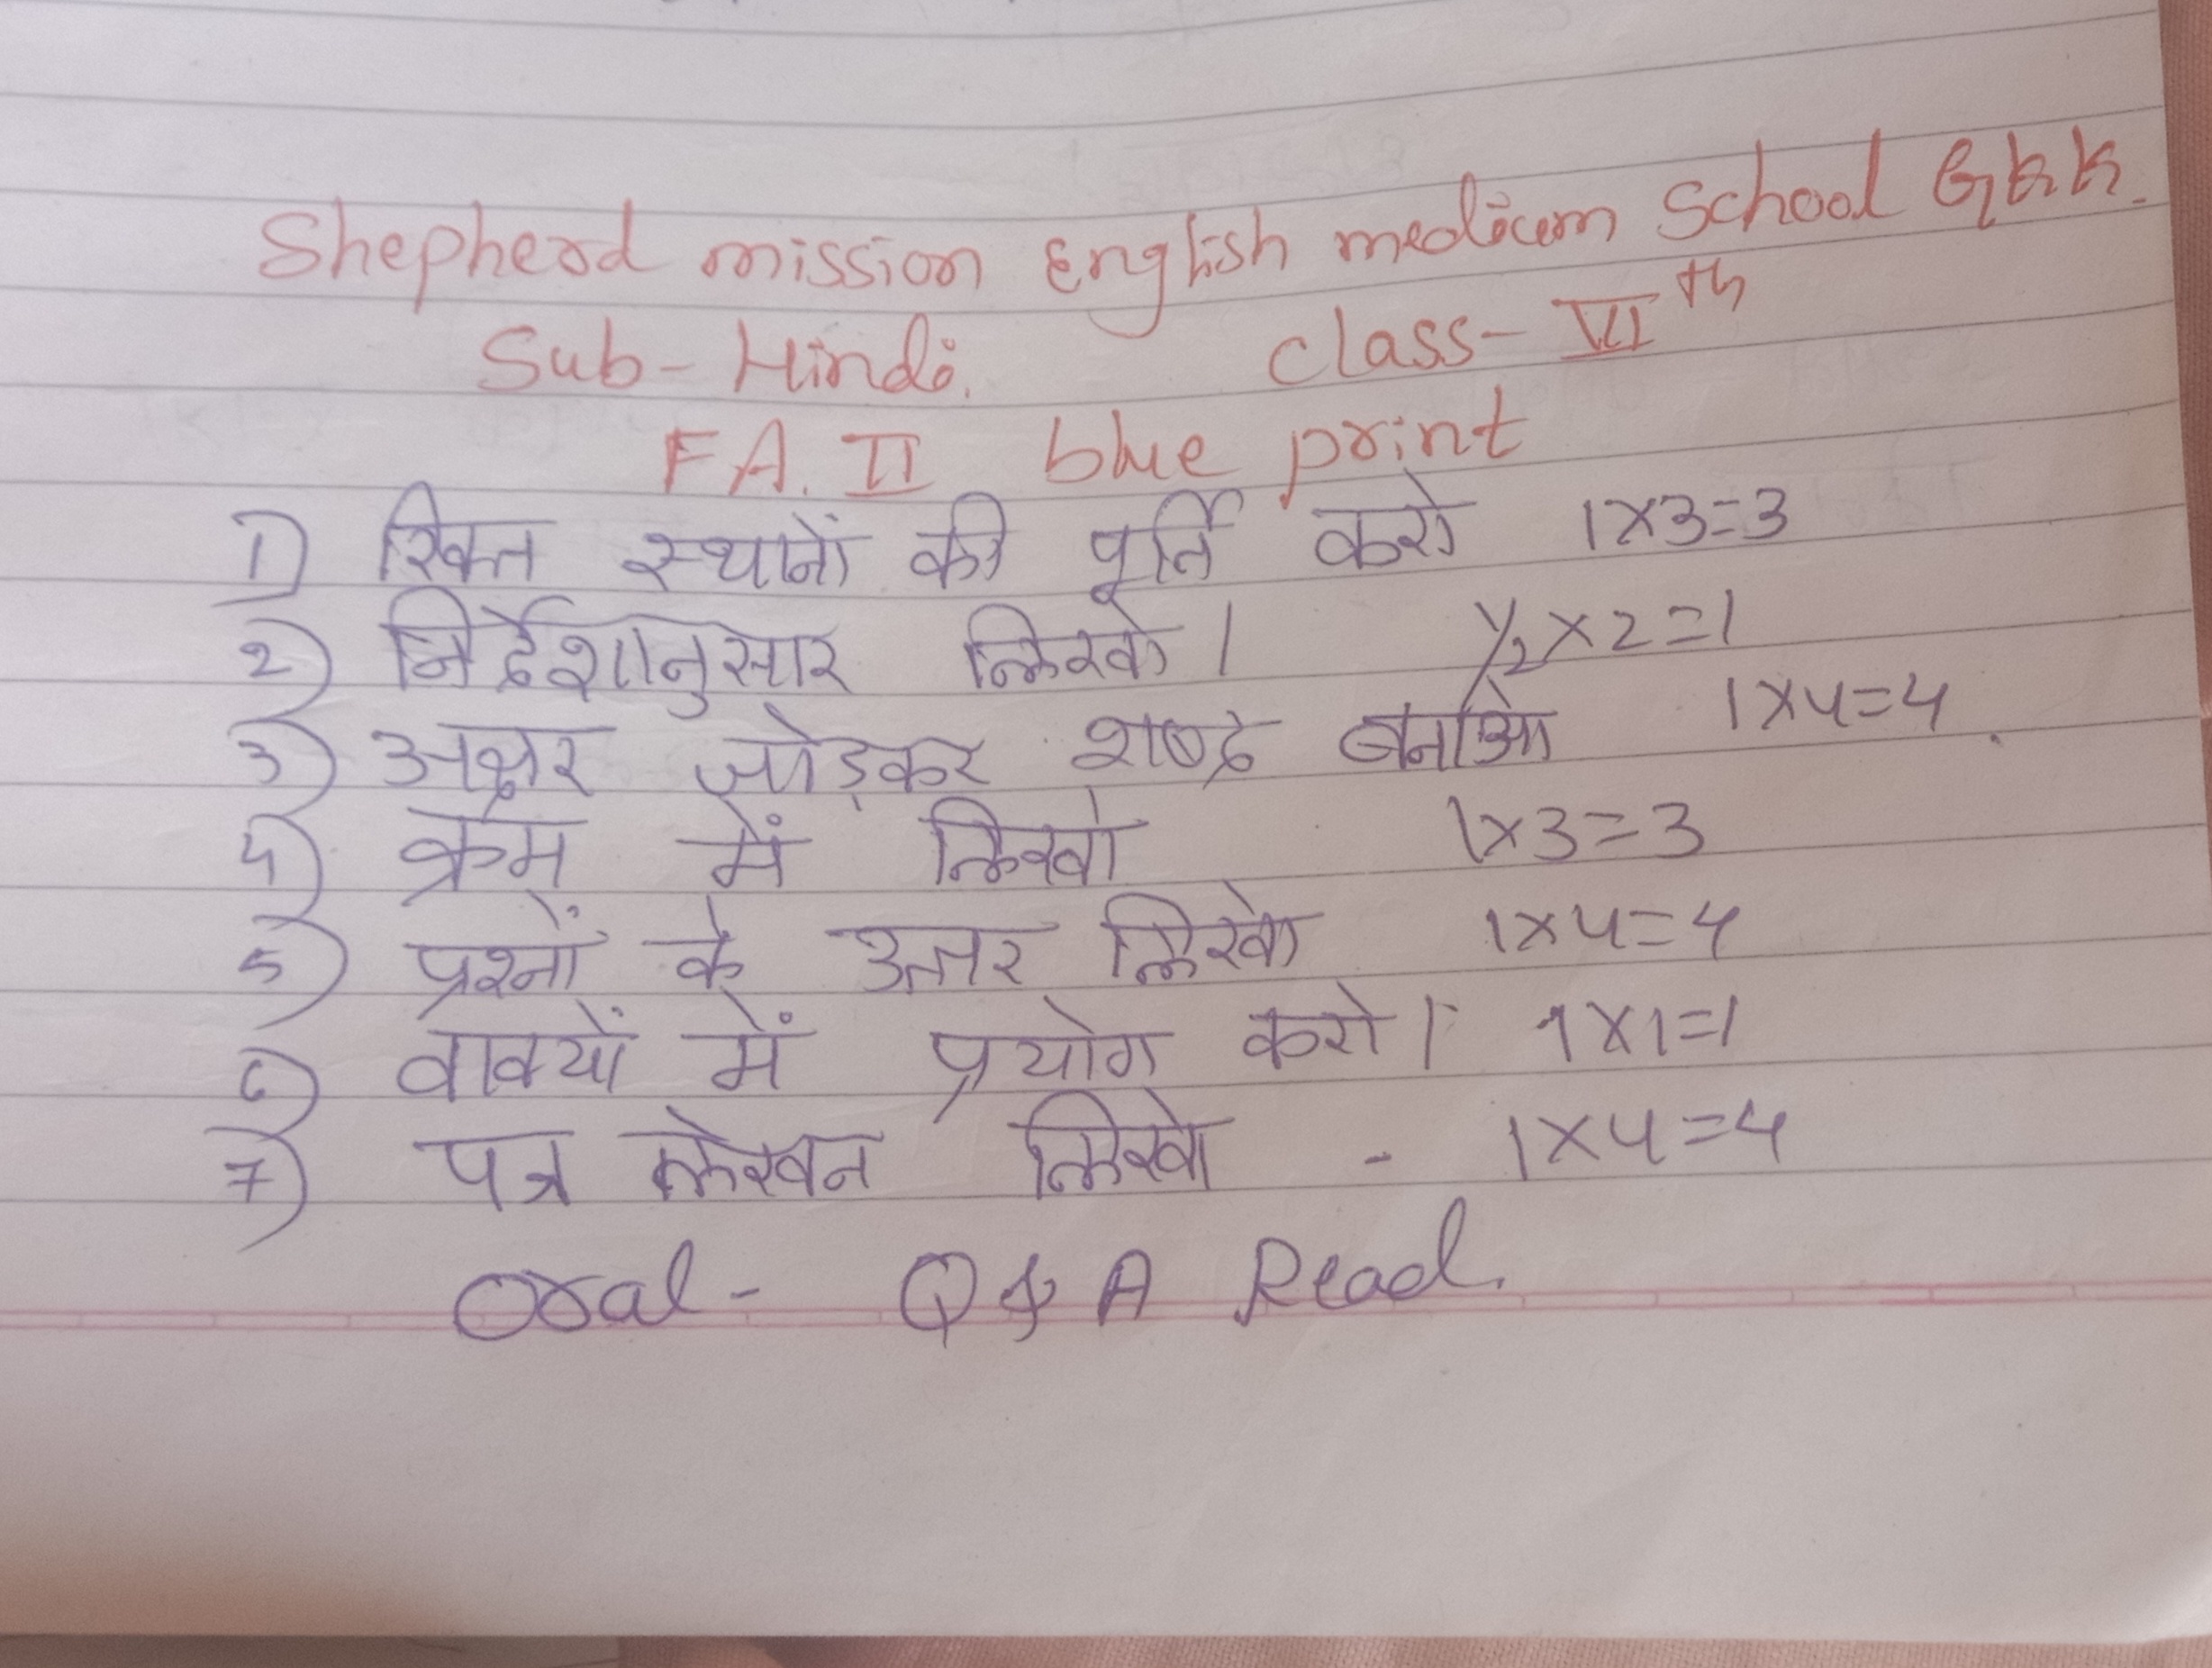 Shepherd mission English medium School GKK.
Sub - Hindi. class - VI th
FA. II blue print
1) रिक्त स्थानों की पूर्ति करो 1×3=3
2) निर्देशानुसार लिखो। 1/2×2=1
3) अक्षर जोड़कर शब्द बनाओ 1×4=4
4) क्रम में लिखो 1×3=3
5) प्रश्नों के उत्तर लिखो 1×4=4
6) वाक्यों में प्रयोग करो। 1×1=1
7) पत्र लेखन लिखो - 1×4=4
Oral - Q & A Read.